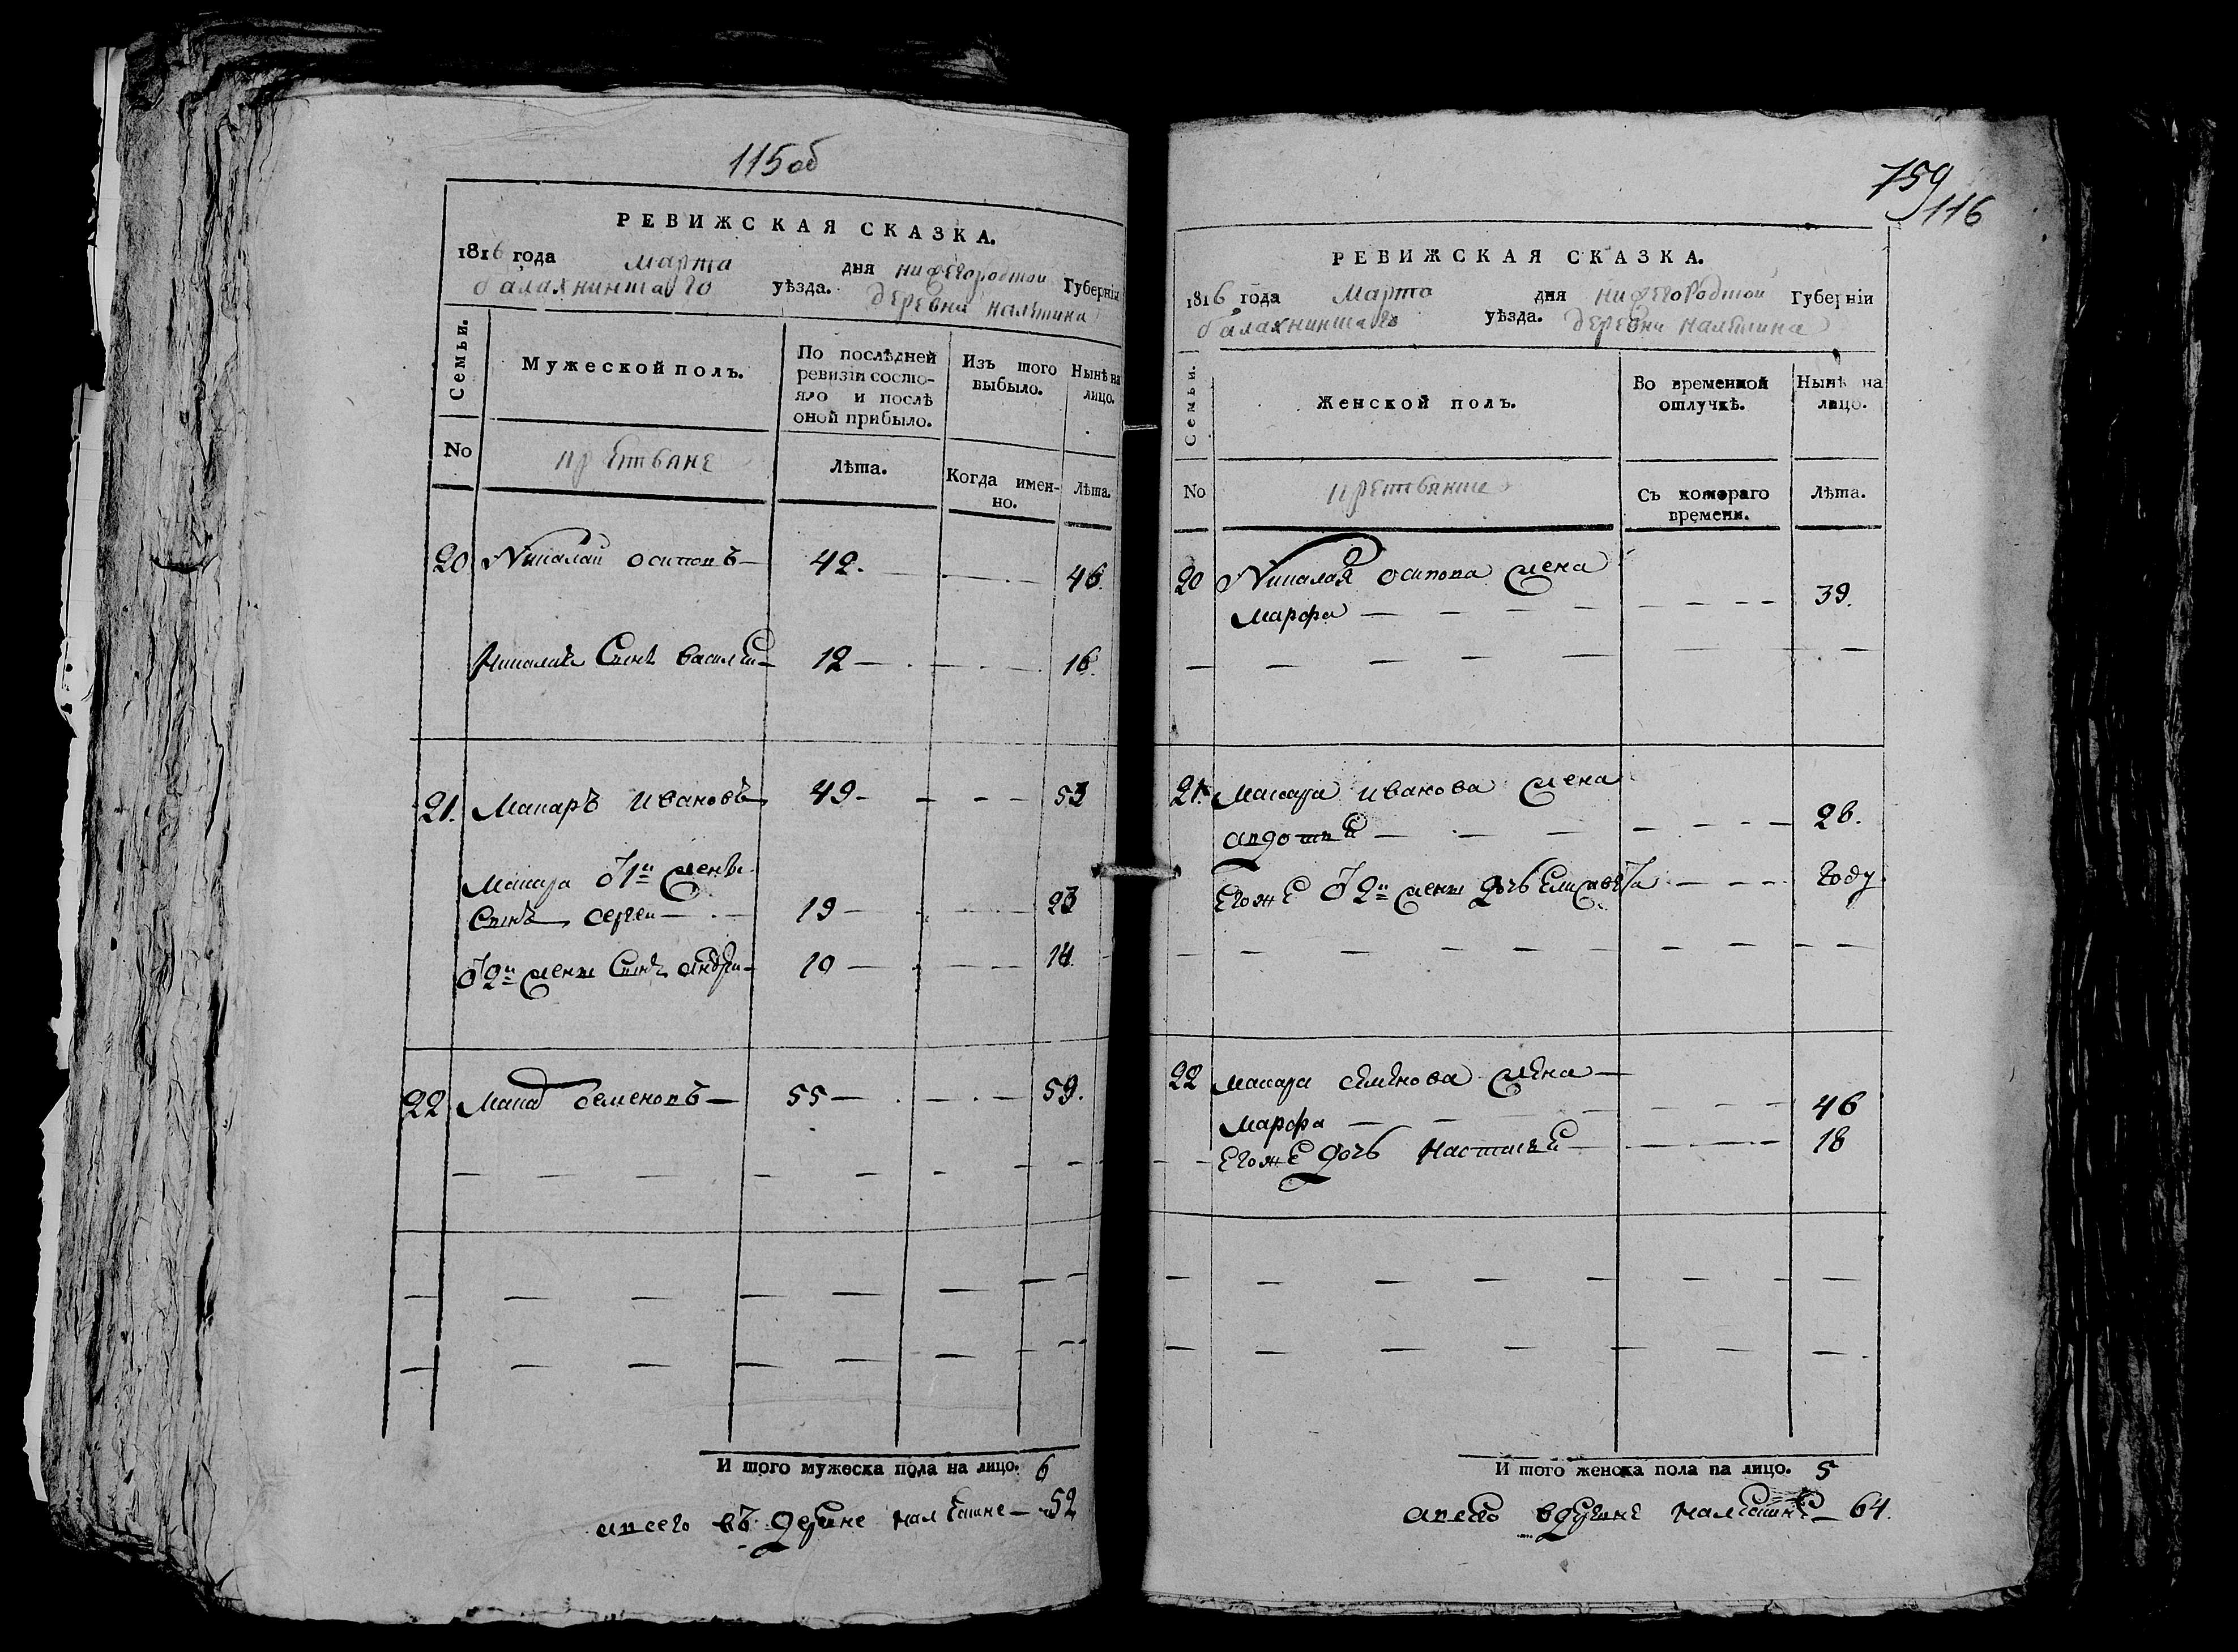 115об
РЕВИЖСКАЯ СКАЗКА.
1816 года марта дня нижегородской Губерніи
балахнинскаго уѣзда. деревни
Семьи.
Мужеской полъ.
По послѣдней ревизіи состо-
яло и послѣ оной прибыло.
Изъ того выбыло.
Нынѣ на лицо.
No
крестьяне
Лѣта.
Когда имен-
но.
Лѣта.
20 Николай осиповъ 42. 46.
Николая Сынъ василей 12 16.
21. Макаръ ивановъ 49 53
Макара От 1й жены
Сынъ сергеи 19 23
От 2й жены Сынъ андреи 10 14
22 Макар семеновъ 55 59.
И того мужеска пола на лицо. 6
а всего въ дерѣвне 52
759
116
РЕВИЖСКАЯ СКАЗКА.
1816 года марта дня нижегородской Губерніи
балахнинскаго уѣзда. деревни
Семьи.
Женской полъ.
Во временной отлучкѣ.
Нынѣ на лицо.
No
Съ котораго времени.
Лѣта.
20 Николая осипова жена
марфа 39.
21. Макара иванова жена
авдотья 26.
Егоже От 2й жены дочь Елисавета году
22 Макара семенова жена
марфа 46
Егоже дочь настасья 18
И того женска пола на лицо. 5
а всего 64.